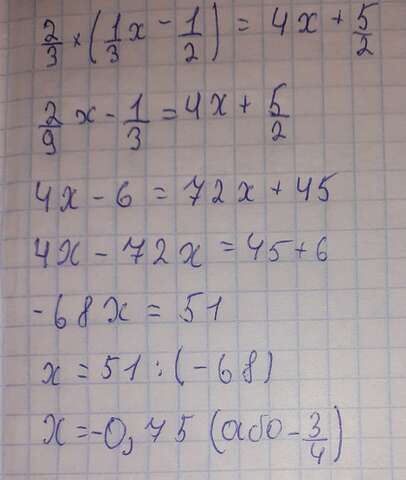 2/3 × (1/3x - 1/2) = 4x + 5/2
2/9 x - 1/3 = 4x + 5/2
4x - 6 = 72x + 45
4x - 72x = 45 + 6
-68x = 51
x = 51 : (-68)
x = -0,75 (або - 3/4)